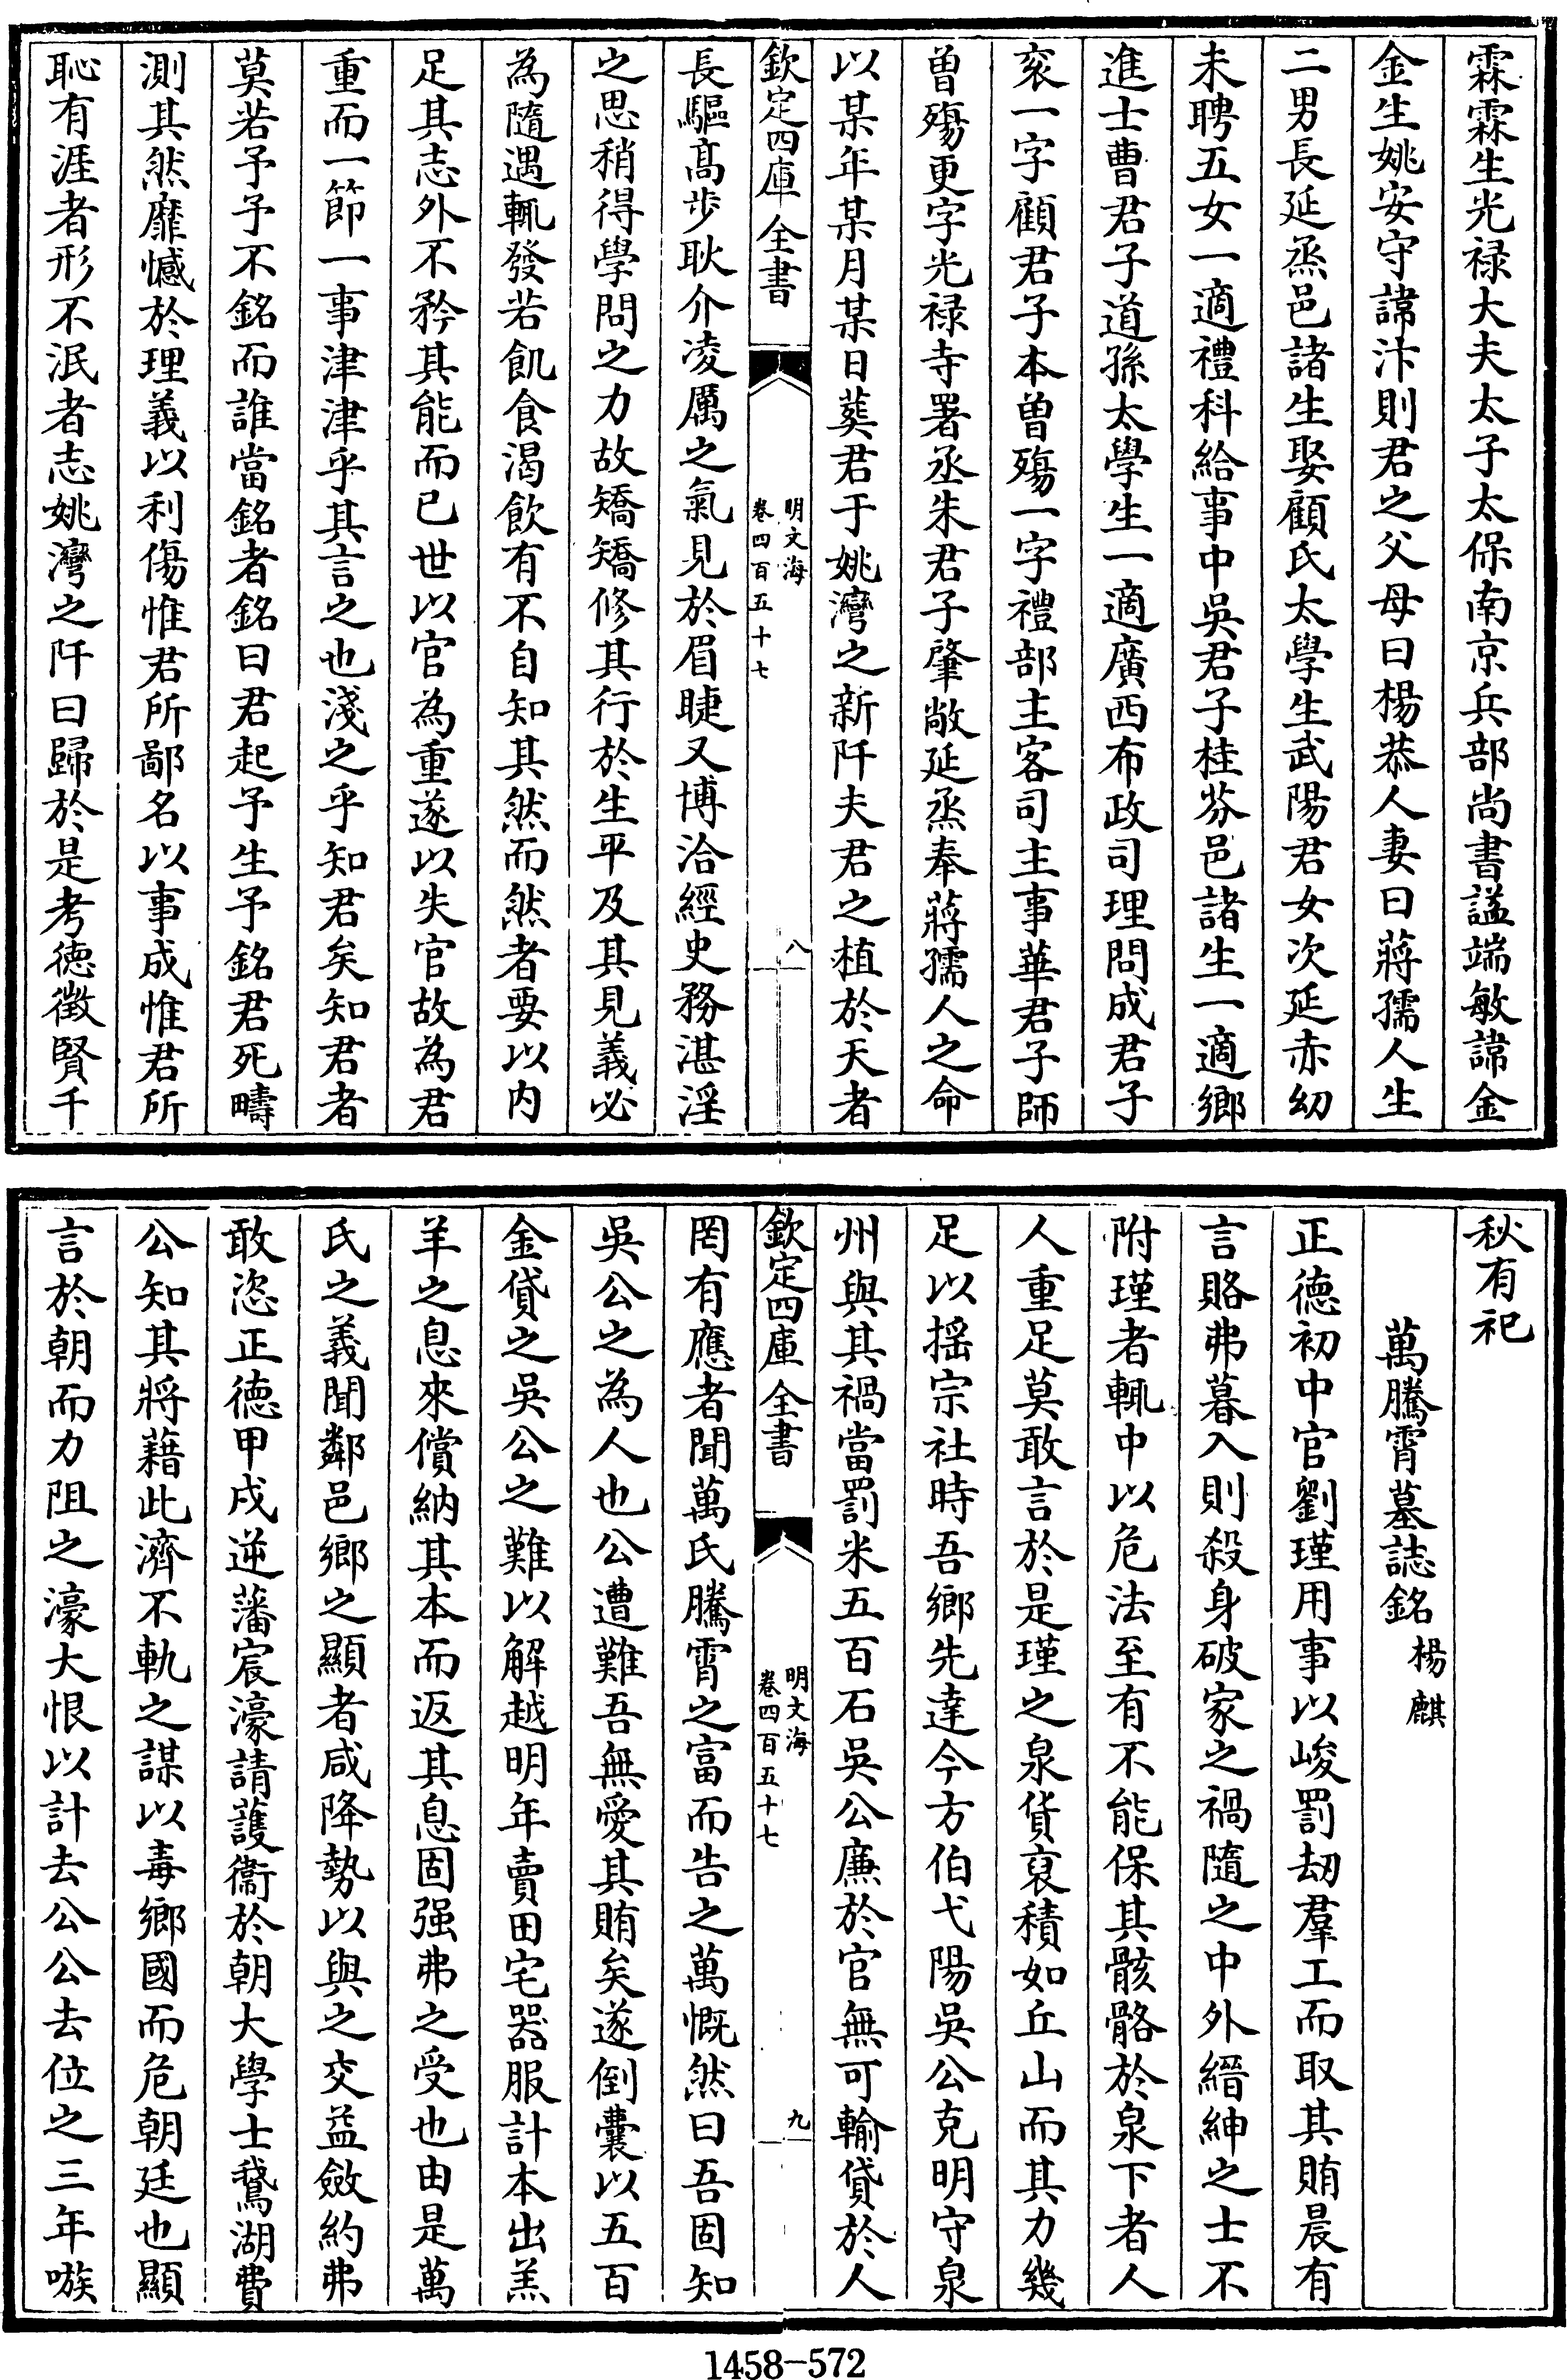 霖霖生光禄大夫太子太保南京兵部尚書諡端敏諱金
金生姚安守諱汴則君之父母曰楊恭人妻曰蔣孺人生
二男長延烝邑諸生娶顧氏太學生武陽君女次延赤幼
未聘五女一適禮科給事中吳君子桂芬邑諸生一適鄉
進士曹君子道孫太學生一適廣西布政司理問成君子
衮一字顧君子本曾殤一字禮部主客司主事華君子師
曾殤更字光禄寺署丞朱君子肇敞延烝奉蔣孺人之命
以某年某月某日葬君于姚灣之新阡夫君之植於天者
欽定四庫全書
明文海
卷四百五十七
八
長驅髙步耿介凌厲之氣見於眉睫又博洽經史務湛淫
之思稍得學問之力故矯矯修其行於生平及其見義必
為隨遇輒發若飢食渴飲有不自知其然而然者要以内
足其志外不矜其能而已世以官為重遂以失官故為君
重而一節一事津津乎其言之也淺之乎知君矣知君者
莫若予予不銘而誰當銘者銘曰君起予生予銘君死疇
測其然靡憾於理義以利傷惟君所鄙名以事成惟君所
恥有涯者形不泯者志姚灣之阡曰歸於是考徳徴賢千
秋有祀
萬騰霄墓誌銘 楊麒
正徳初中官劉瑾用事以峻罰刼羣工而取其賄晨有
言賂弗暮入則殺身破家之禍隨之中外縉紳之士不
附瑾者輒中以危法至有不能保其骸骼於泉下者人
人重足莫敢言於是瑾之泉貨裒積如丘山而其力幾
足以揺宗社時吾鄉先達今方伯弋陽吳公克明守泉
州與其禍當罰米五百石吳公廉於官無可輸貸於人
欽定四庫全書
明文海
卷四百五十七
九
罔有應者聞萬氏騰霄之富而告之萬慨然曰吾固知
吳公之為人也公遭難吾無愛其賄矣遂倒囊以五百
金貸之吳公之難以解越明年賣田宅器服計本出羔
羊之息來償納其本而返其息固强弗之受也由是萬
氏之義聞鄰邑鄉之顯者咸降勢以與之交益斂約弗
敢恣正徳甲戌逆藩宸濠請䕶衞於朝大學士鵞湖費
公知其將藉此濟不軌之謀以毒鄉國而危朝廷也顯
言於朝而力阻之濠大恨以計去公公去位之三年嗾
1458-572